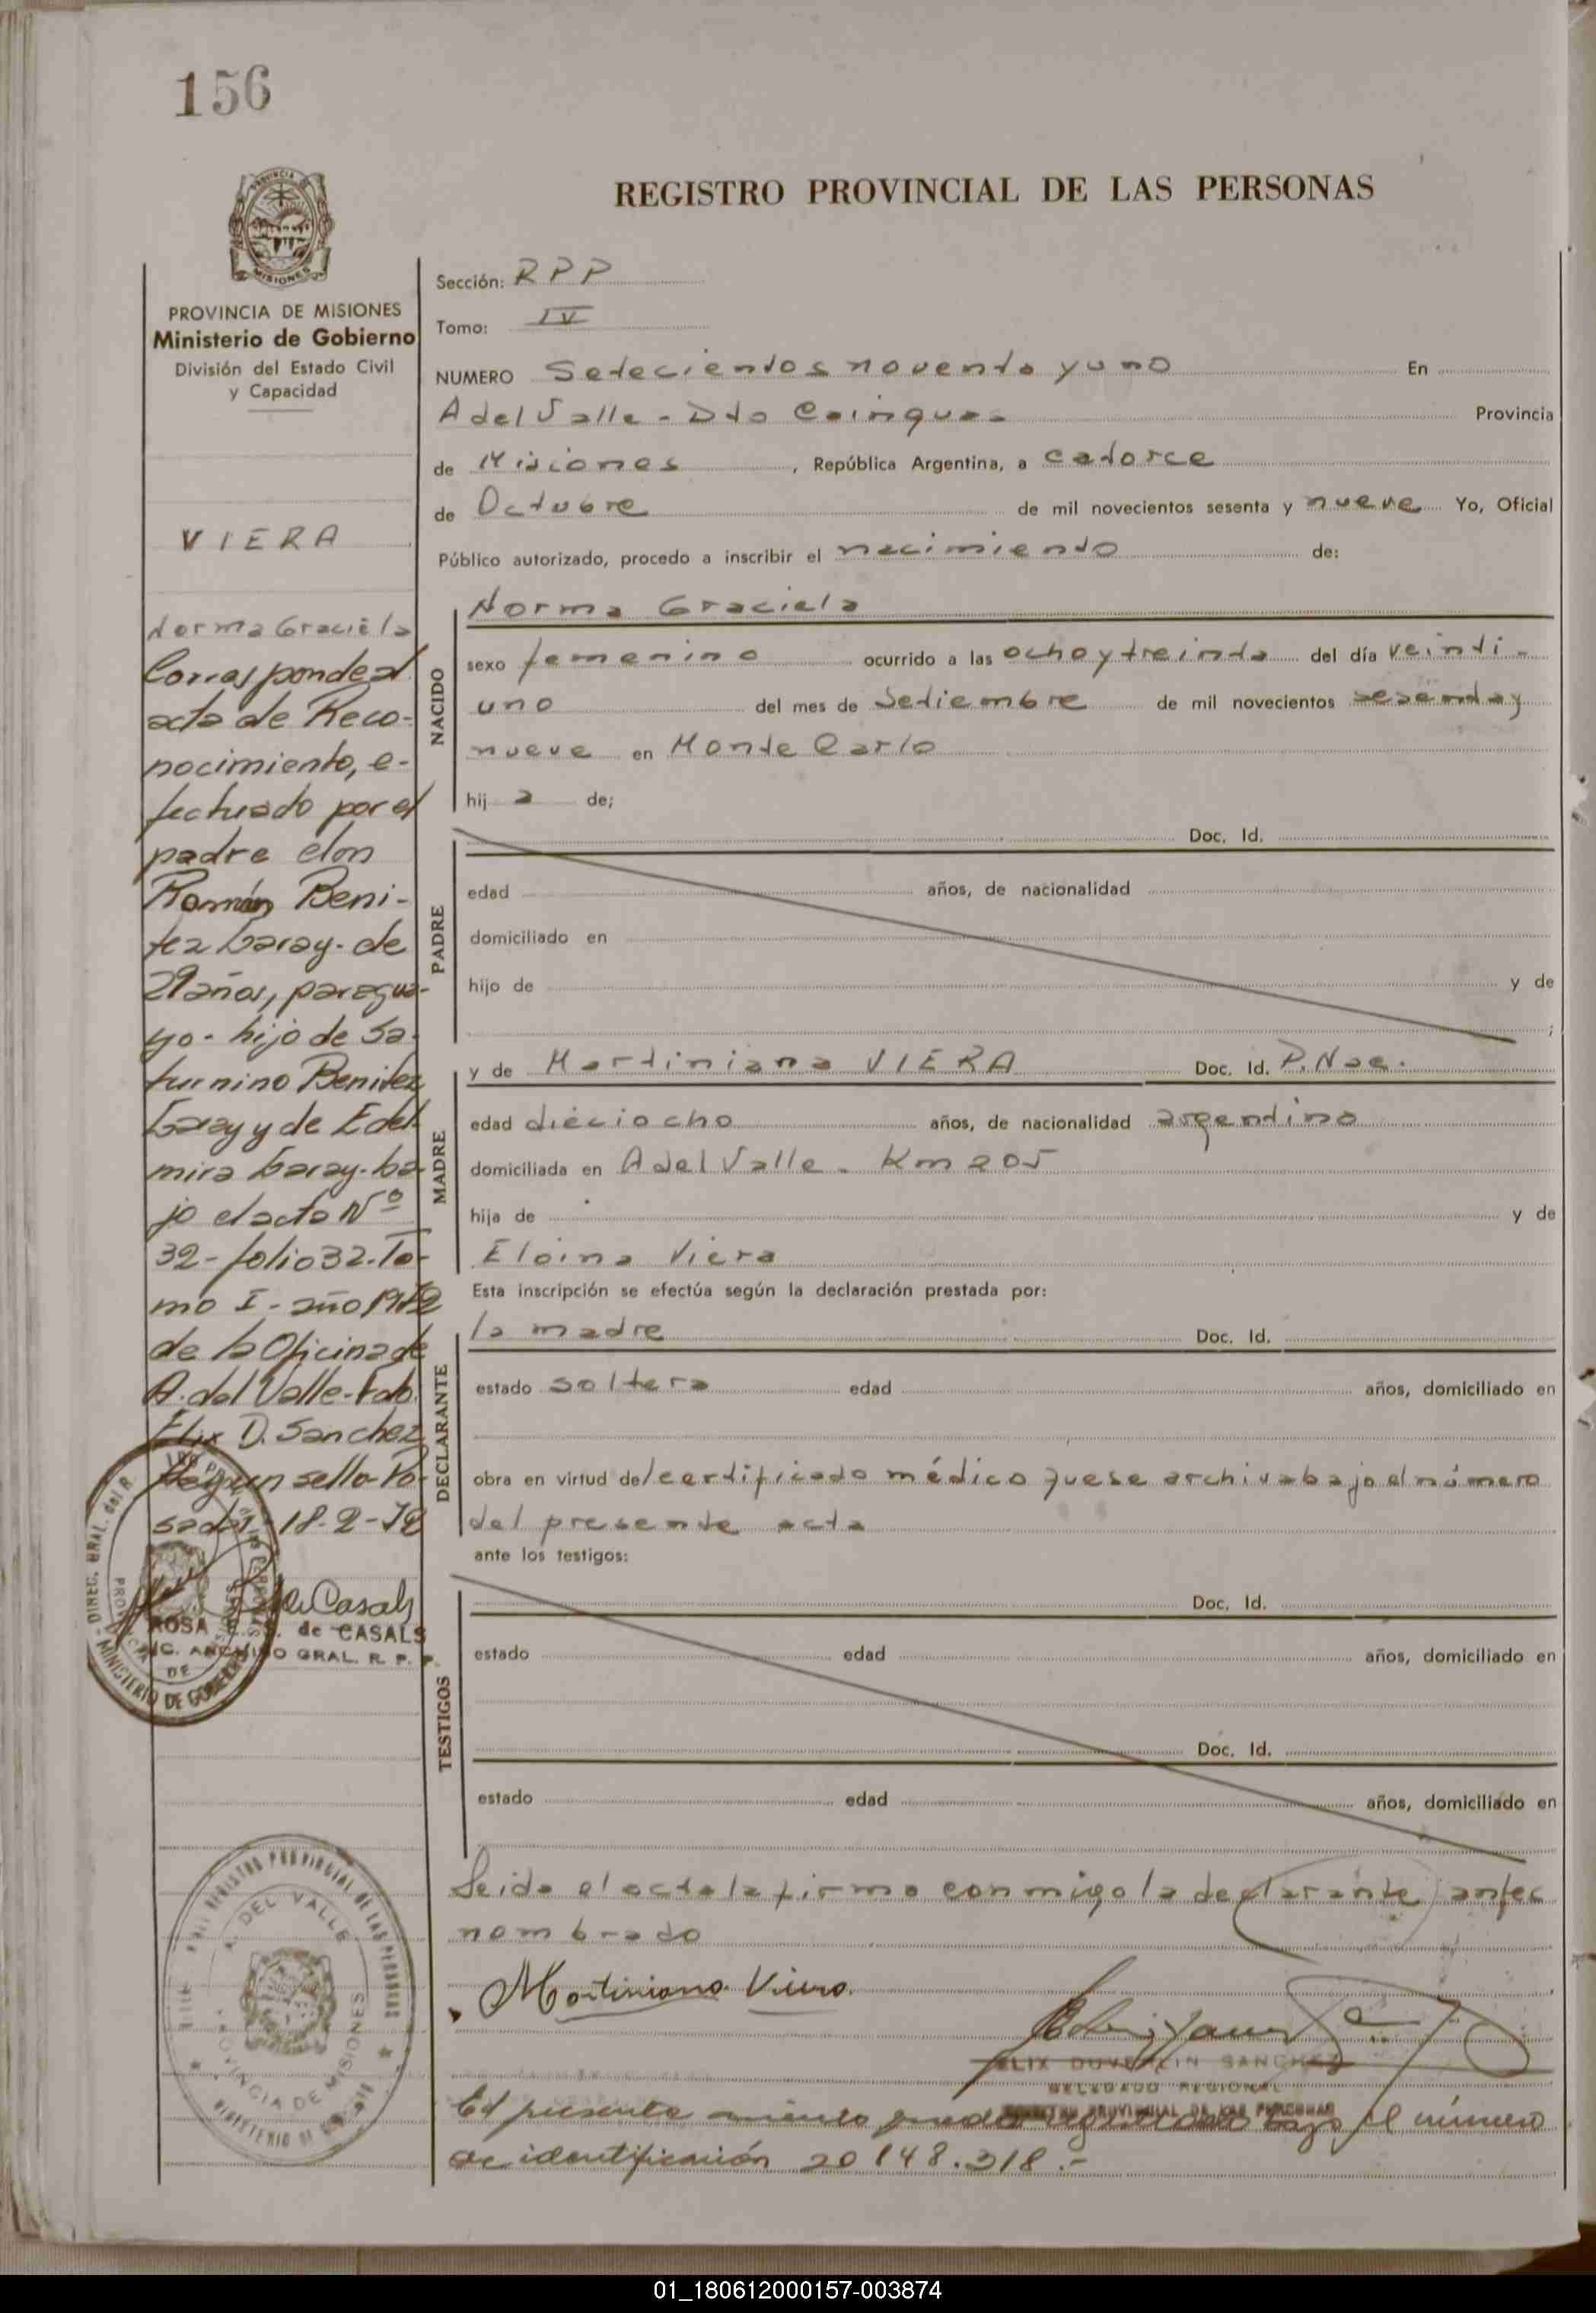 156
PROVINCIA
MISIONES
PROVINCIA DE MISIONES
Ministerio de Gobierno
División del Estado Civil
y Capacidad
VIERA
Norma Graciela
Corresponde al
acta de Reco-
nocimiento, e-
fectuado por el
padre don
Román Beni-
tez Garay-de
29 años, paragua-
yo-hijo de Sa-
turnino Benitez
Garay y de Edel
mira Garay-ba-
jo el acta Nº
32-folio 32-To-
mo I-año 1972
de la Oficina de
A. del Valle-Fdo.
Elix D. Sanchez
Hay un sello-Po-
sadas-18-2-72
de Casals
ROSA de CASALS
ARCHIVO GRAL. R. P. P.
DIREC. GRAL. del R.
MINISTERIO DE GOBIERNO
REGISTRO PROVINCIAL DE LAS PERSONAS
A. DEL VALLE
PROVINCIA DE MISIONES
REGISTRO PROVINCIAL DE LAS PERSONAS
Sección: RPP
Tomo: IV
NUMERO Setecientos noventa y uno En
A del Valle - Dto Cainguas Provincia
de Misiones, República Argentina, a catorce
de Octubre de mil novecientos sesenta y nueve Yo, Oficial
Público autorizado, procedo a inscribir el nacimiento de:
NACIDO
Norma Graciela
sexo femenino ocurrido a las ocho y treinta del día veinti-
uno del mes de Setiembre de mil novecientos sesenta y
nueve en Monte Carlo
hij a de;
PADRE
Doc. Id.
edad años, de nacionalidad
domiciliado en
hijo de y de
;
MADRE
y de Martiniana VIERA Doc. Id. P. Nac.
edad dieciocho años, de nacionalidad argentina
domiciliada en A del Valle - Km 205
hija de y de
Eloina Viera
Esta inscripción se efectúa según la declaración prestada por:
DECLARANTE
la madre Doc. Id.
estado soltera edad años, domiciliado en
obra en virtud del certificado médico que se archiva bajo el número
del presente acta
ante los testigos:
TESTIGOS
Doc. Id.
estado edad años, domiciliado en
Doc. Id.
estado edad años, domiciliado en
Leida el acta la firma conmigo la declarante antes
nombrado
Martiniana Viera.
ELIX DUVERLIN SANCHEZ
DELEGADO REGIONAL
REGISTRO PROVINCIAL DE LAS PERSONAS
El presente asiento queda registrado bajo el número
de identificación 20148.318.-
01_180612000157-003874